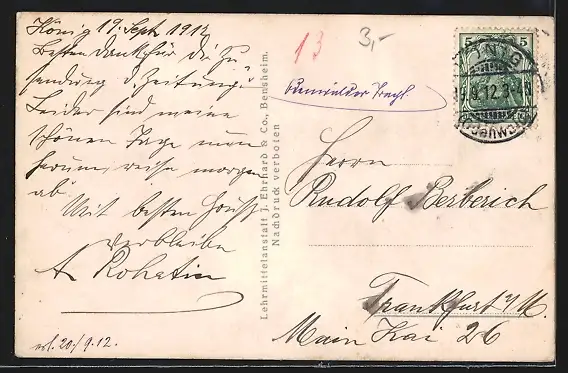 König 19. Sept 1912
Besten Dank für die Zu-
sendung d. Zeitung.
Leider sind meine
schönen Tage nun
herum, reise morgen
ab.
Mit besten Gruß
verbleibe
A. Rohatin
erl. 20/9.12.
Lehrmittelanstalt J. Ehrhard & Co., Bensheim.
Nachdruck verboten
13
3,-
Herrn
Rudolf Berberich
Frankfurt a/M.
Main Kai 26
5 5
KÖNIG
9.12.3-4N
(Odenwald)